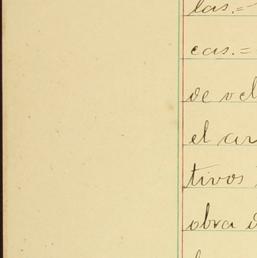 las.=
cas.=
de vel
el ar
tivos
obra d